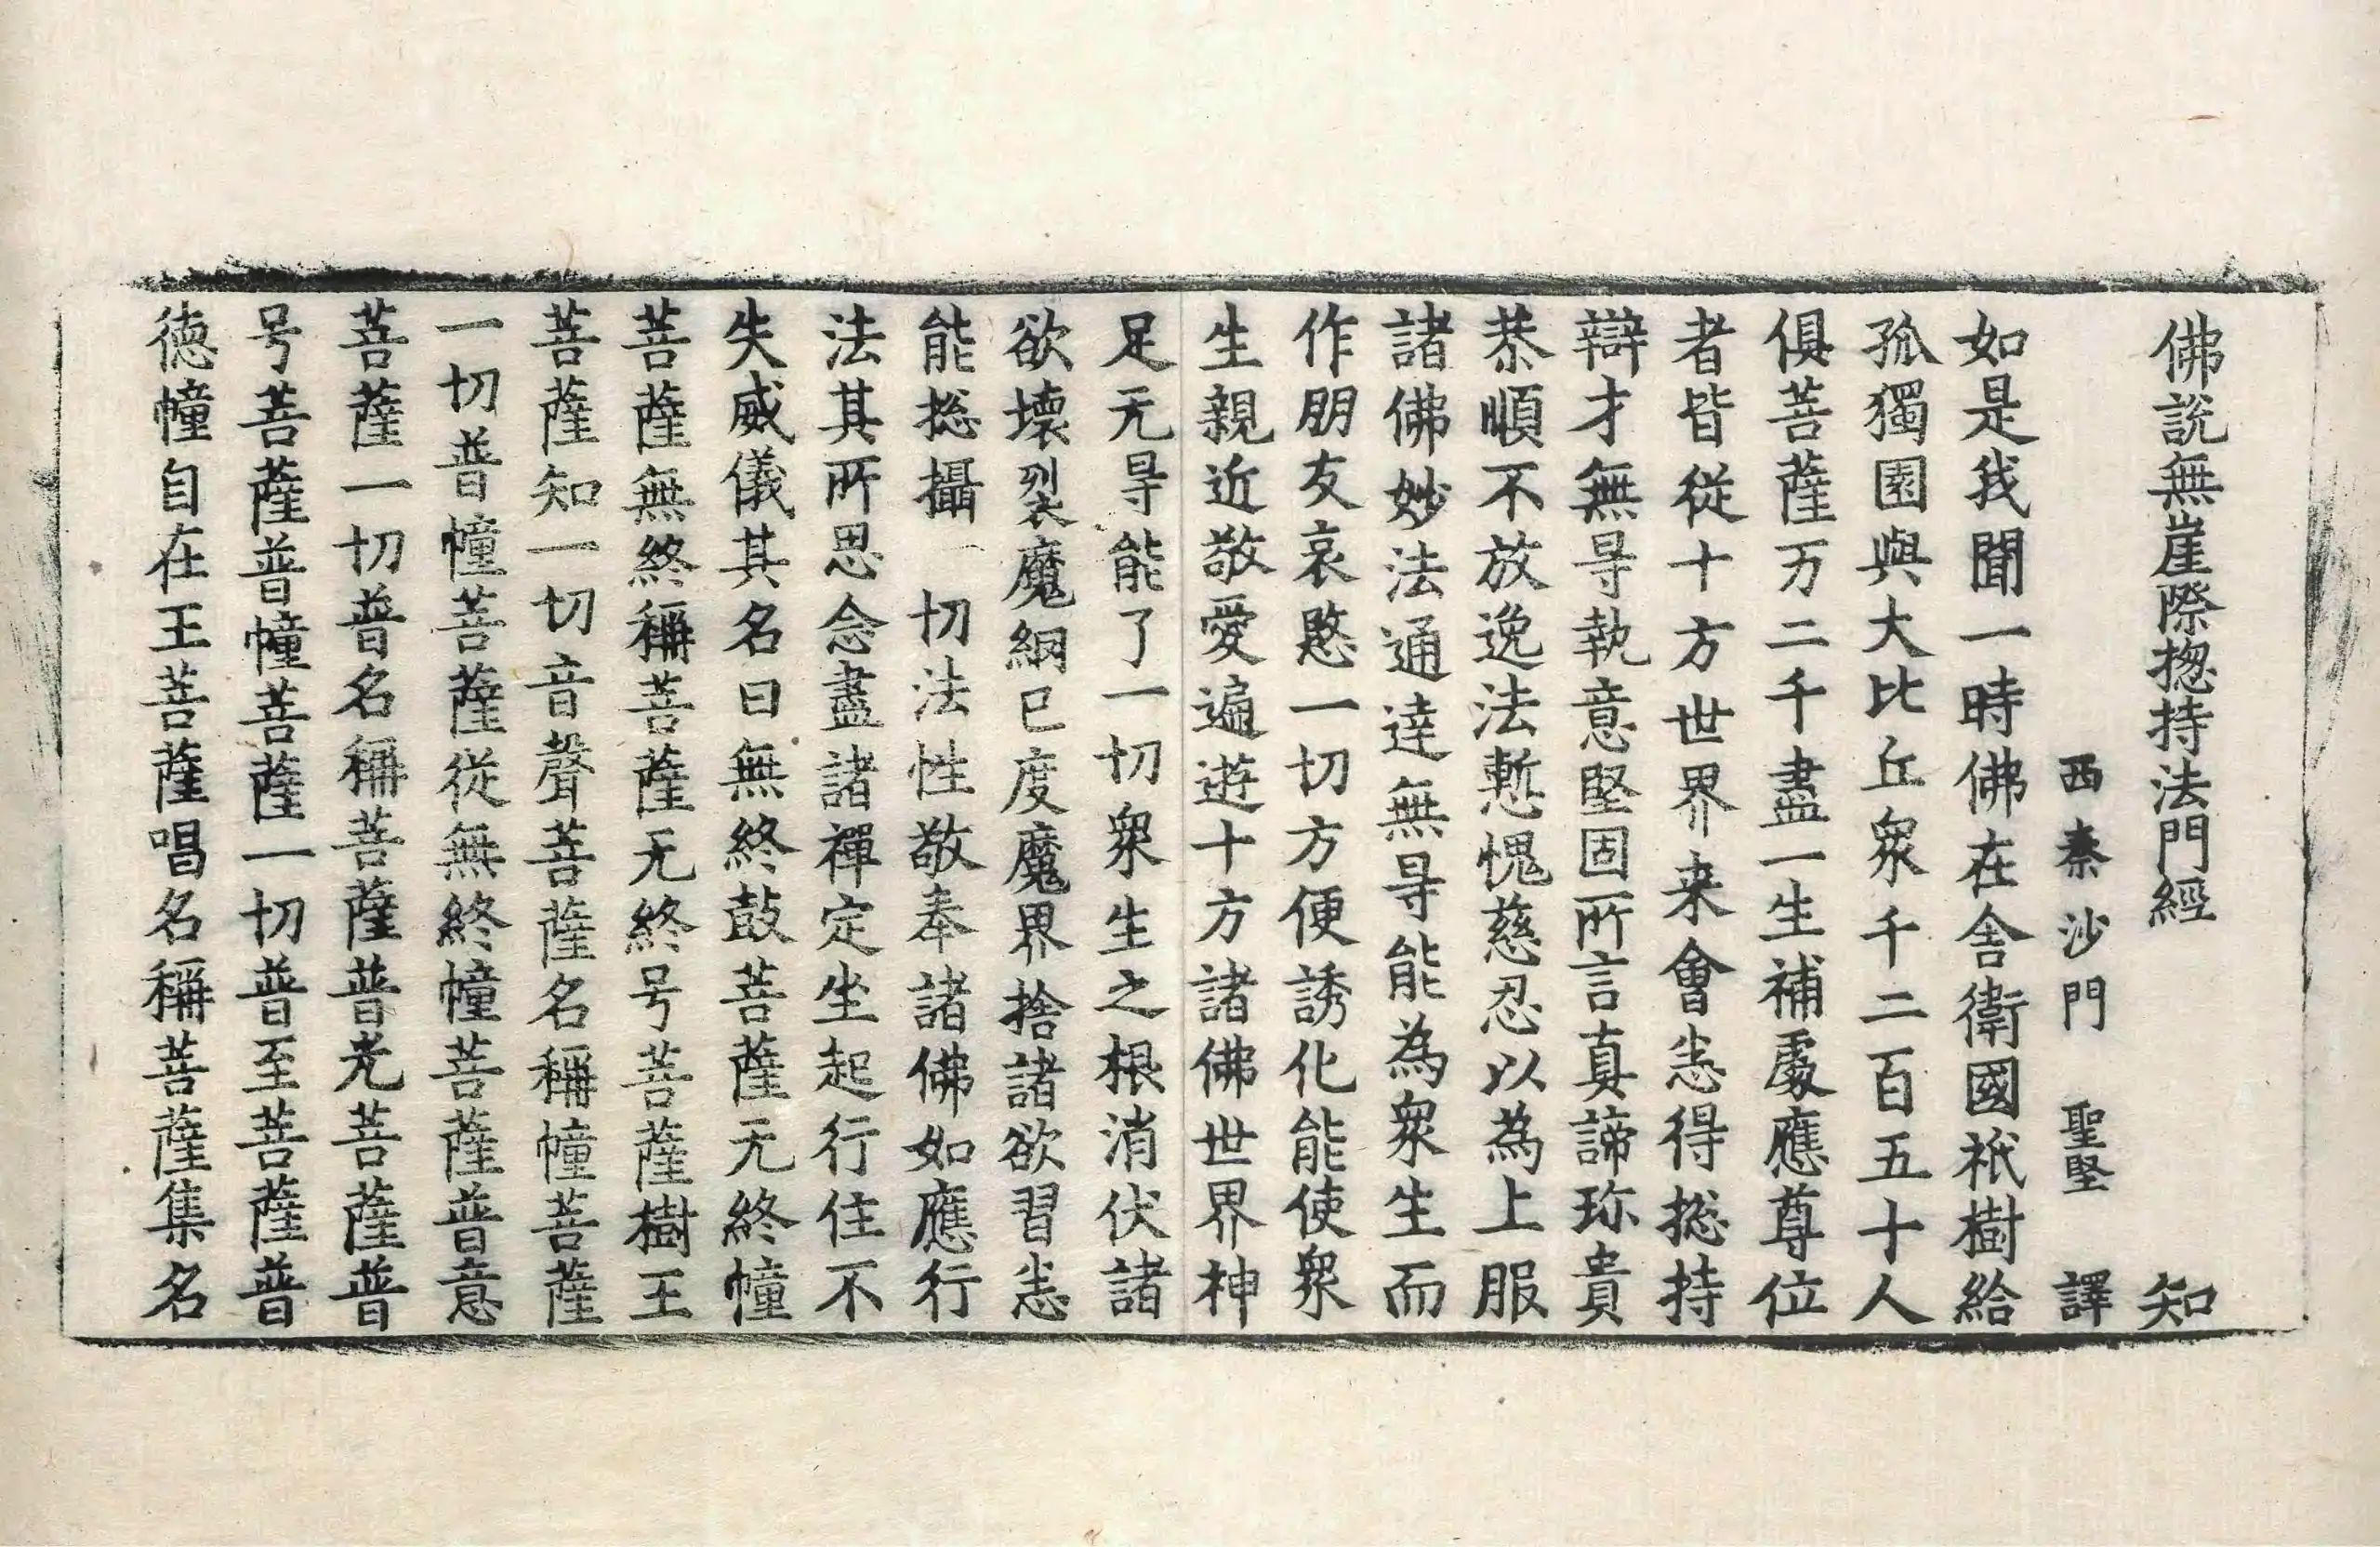 佛說無崖際揔持法門經　知
西秦沙門　聖堅　譯
如是我聞一時佛在舍衛國祇樹給
孤獨園與大比丘衆千二百五十人
俱菩薩万二千盡一生補處應尊位
者皆從十方世界来會悉得揔持
辯才無㝵執意堅固所言真諦珎貴
恭順不放逸法慙愧慈忍以為上服
諸佛妙法通達無㝵能為衆生而
作朋友哀愍一切方便誘化能使衆
生親近敬愛遍遊十方諸佛世界神
足无㝵能了一切衆生之根消伏諸
欲壞裂魔網已度魔界捨諸欲習悉
能揔攝　切法性敬奉諸佛如應行
法其所思念盡諸禪定坐起行住不
失威儀其名曰無終鼓菩薩无終幢
菩薩無終稱菩薩无終号菩薩樹王
菩薩知一切音聲菩薩名稱幢菩薩
一切普幢菩薩從無終幢菩薩普意
菩薩一切普名稱菩薩普光菩薩普
号菩薩普幢菩薩一切普至菩薩普
德幢自在王菩薩唱名稱菩薩集名